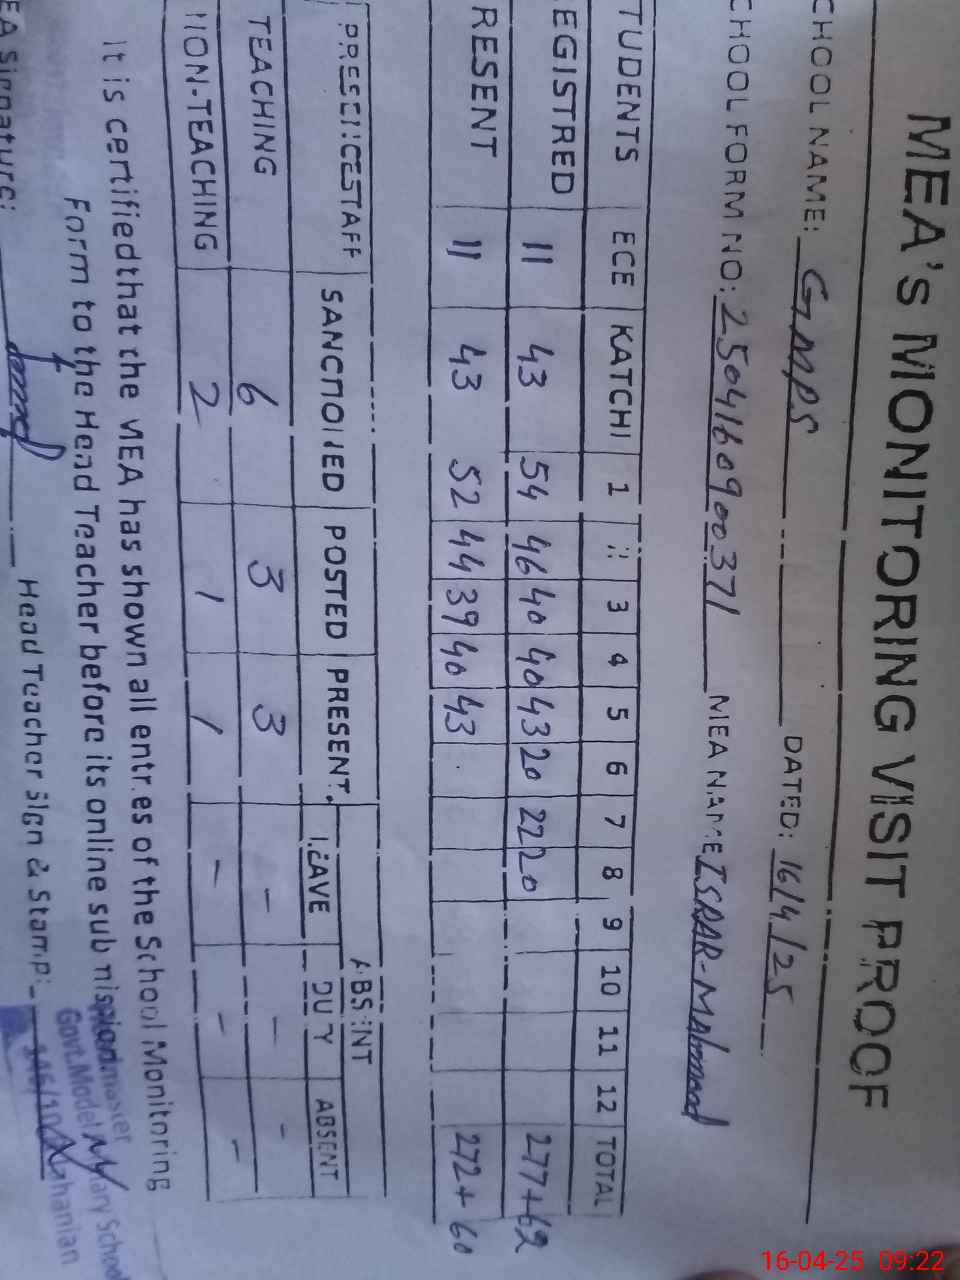 MEA'S MONITORING VISIT PROOF
CHOOL NAME: GMPS DATED: 16/4/25
CHOOL FORM NO: 2504160900371 MEA NAME ISRAR-Mahmood
TUDENTS ECE KATCHI 1 3 4 5 6 7 8 9 10 11 12 TOTAL
EGISTRED 11 43 54 46 40 40 43 20 22 20 277+62
RESENT 11 43 52 44 39 40 43 272+60
PRESENCESTAFF SANCTIONED POSTED PRESENT ABSENT
LEAVE DUTY ABSENT
TEACHING 6 3 3 - - -
NON-TEACHING 2 1 1 - - -
It is certified that the MEA has shown all entries of the School Monitoring
Form to the Head Teacher before its online submission
EA Signature: Head Teacher Sign & Stamp:
Govt. Model Primary School
hanian
16-04-25 09:22